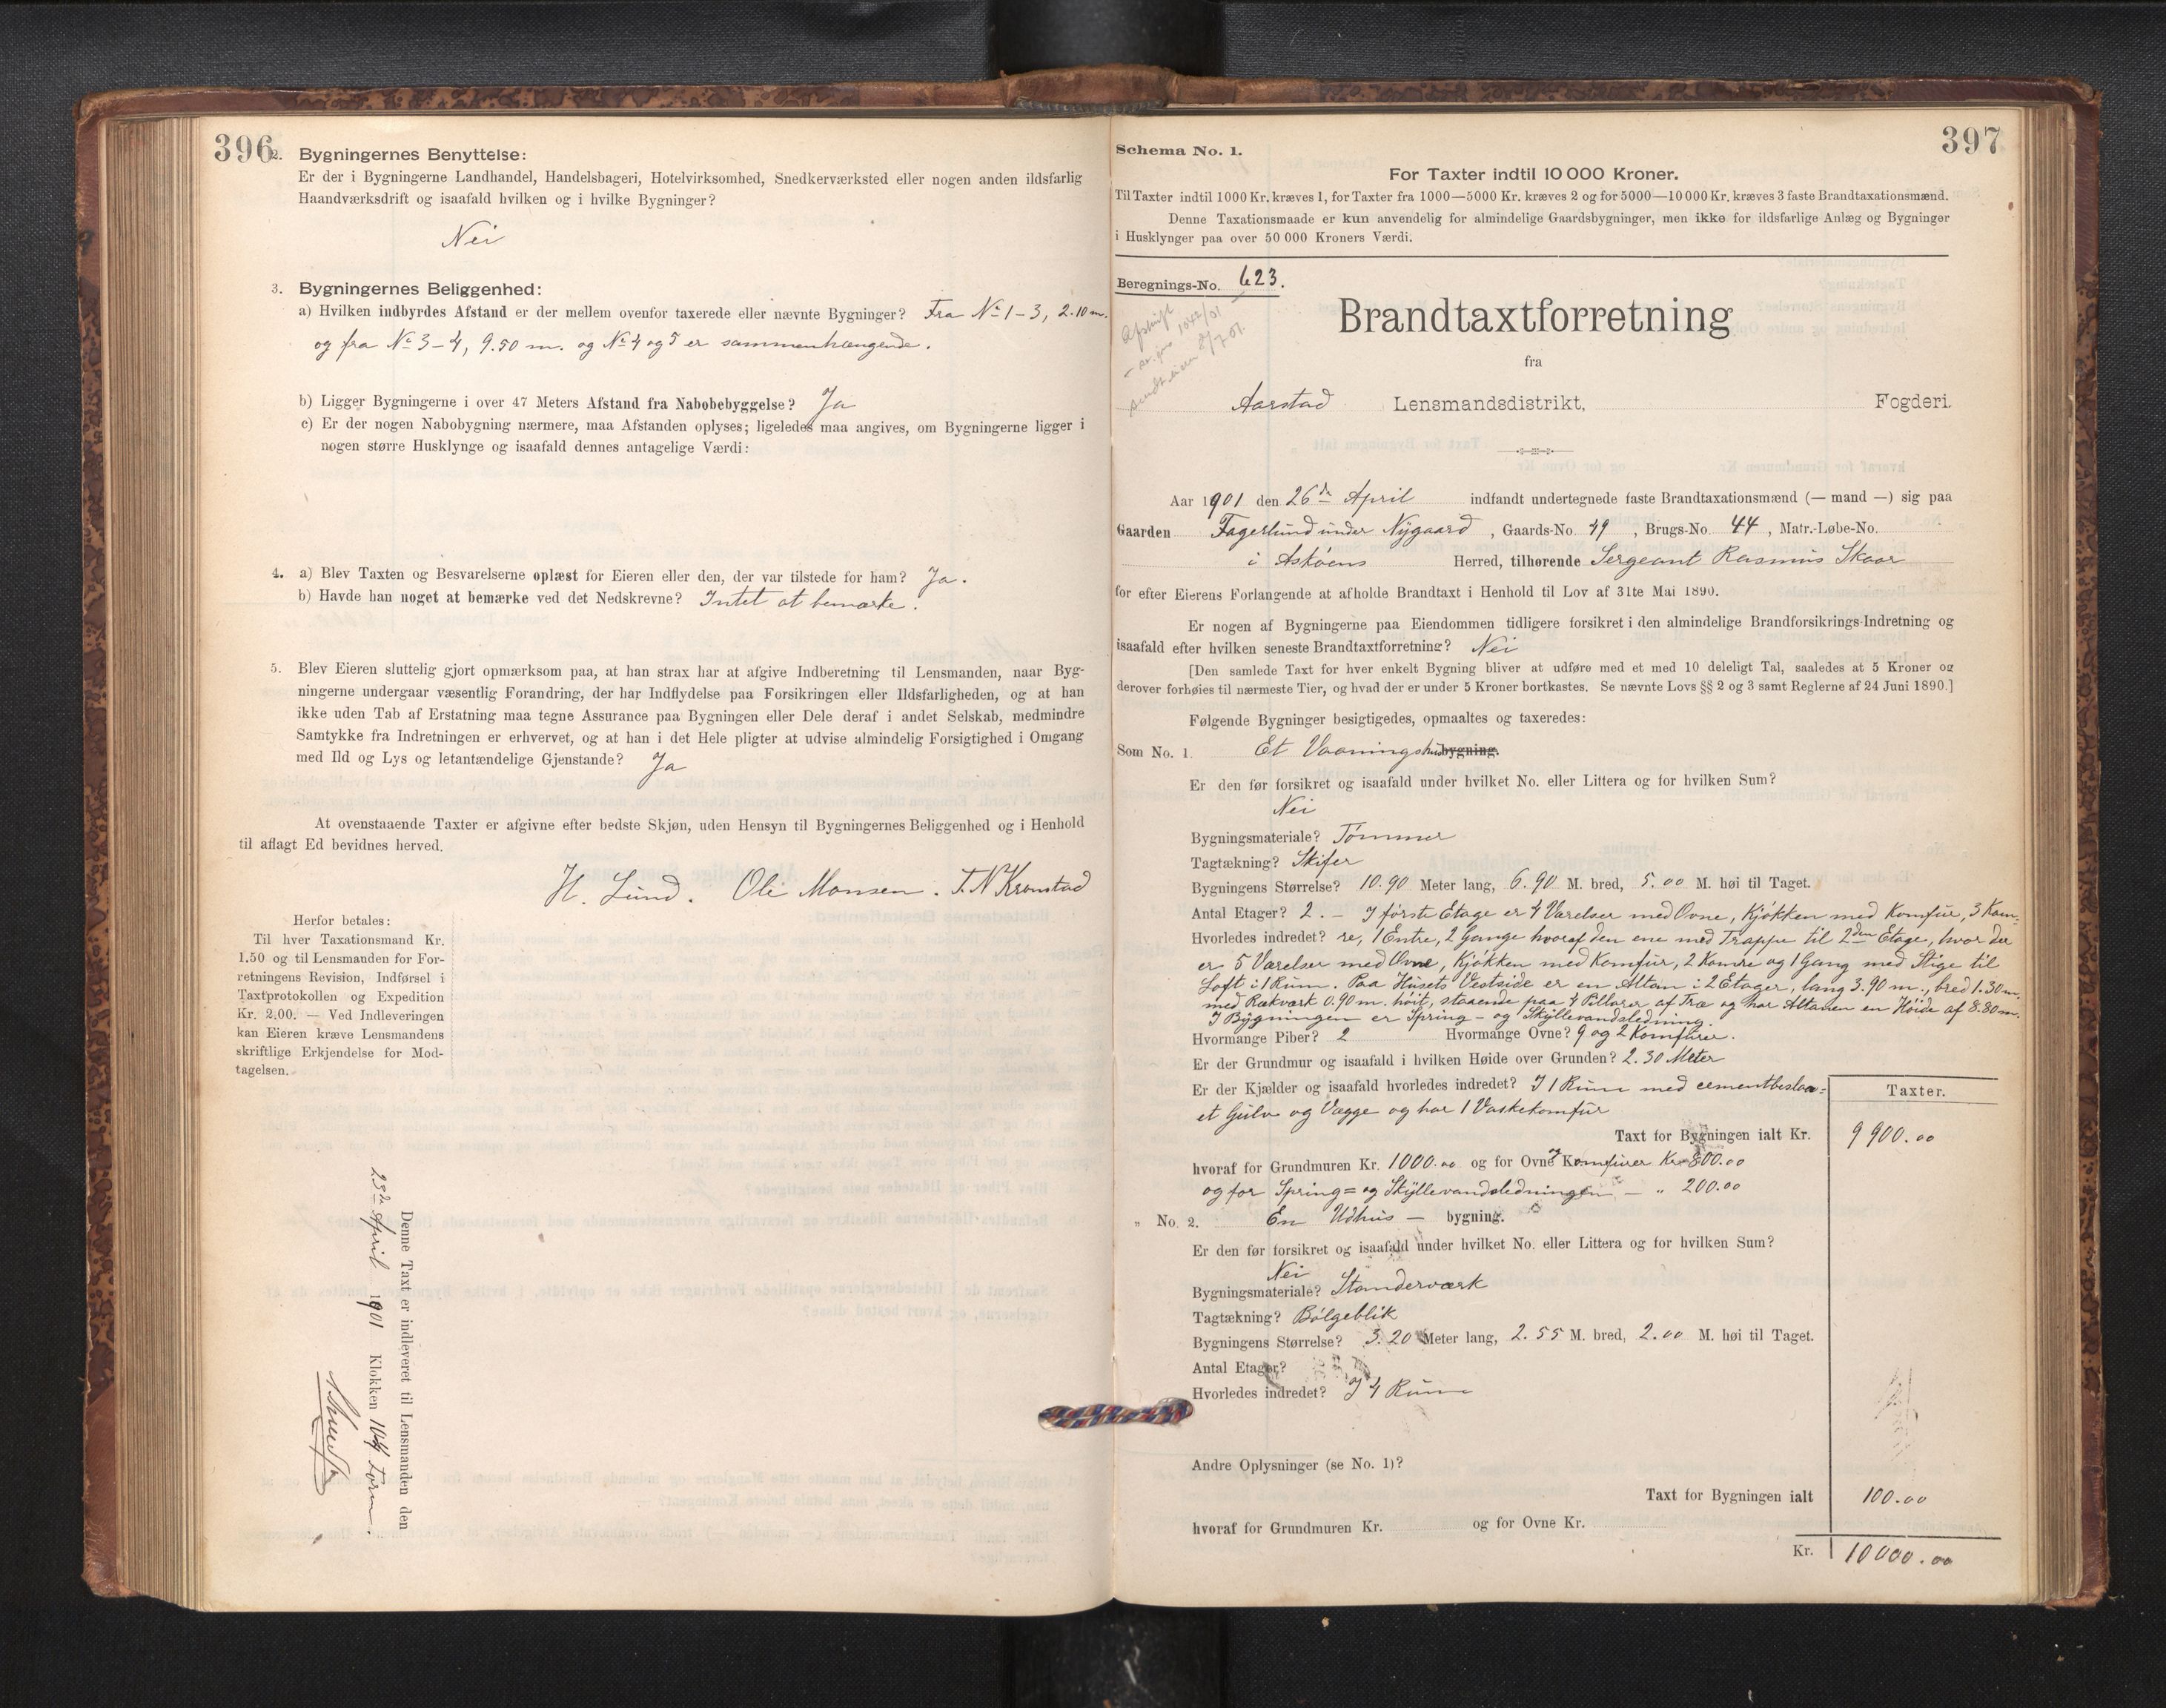 396
2. Bygningernes Benyttelse:
Er der i Bygningerne Landhandel, Handelsbageri, Hotelvirksomhed, Snedkerværksted eller nogen anden ildsfarlig
Haandværksdrift og isaafald hvilken og i hvilke Bygninger?
Nei
3. Bygningernes Beliggenhed:
a) Hvilken indbyrdes Afstand er der mellem ovenfor taxerede eller nævnte Bygninger? Fra No 1–3, 2.10 m.
og fra No 3–4, 9.50 m. og No 4 og 5 er sammenhængende.
b) Ligger Bygningerne i over 47 Meters Afstand fra Nabobebyggelse? Ja
c) Er der nogen Nabobygning nærmere, maa Afstanden oplyses; ligeledes maa angives, om Bygningerne ligger i
nogen større Husklynge og isaafald dennes antagelige Værdi:
4. a) Blev Taxten og Besvarelserne oplæst for Eieren eller den, der var tilstede for ham? Ja.
b) Havde han noget at bemærke ved det Nedskrevne? Intet at bemærke.
5. Blev Eieren sluttelig gjort opmærksom paa, at han strax har at afgive Indberetning til Lensmanden, naar Byg-
ningerne undergaar væsentlig Forandring, der har Indflydelse paa Forsikringen eller Ildsfarligheden, og at han
ikke uden Tab af Erstatning maa tegne Assurance paa Bygningen eller Dele deraf i andet Selskab, medmindre
Samtykke fra Indretningen er erhvervet, og at han i det Hele pligter at udvise almindelig Forsigtighed i Omgang
med Ild og Lys og letantændelige Gjenstande? Ja
At ovenstaaende Taxter er afgivne efter bedste Skjøn, uden Hensyn til Bygningernes Beliggenhed og i Henhold
til aflagt Ed bevidnes herved.
H. Lund. Ole Monsen. T. N Kronstad
Herfor betales:
Til hver Taxationsmand Kr.
1.50 og til Lensmanden for For-
retningens Revision, Indførsel i
Taxtprotokollen og Expedition
Kr. 2.00. — Ved Indleveringen
kan Eieren kræve Lensmandens
skriftlige Erkjendelse for Mod-
tagelsen.
Denne Taxt er indleveret til Lensmanden den
1901 Klokken
April
397
Schema No. 1.
For Taxter indtil 10 000 Kroner.
Til Taxter indtil 1000 Kr. kræves 1, for Taxter fra 1000—5000 Kr. kræves 2 og for 5000—10 000 Kr. kræves 3 faste Brandtaxationsmænd.
Denne Taxationsmaade er kun anvendelig for almindelige Gaardsbygninger, men ikke for ildsfarlige Anlæg og Bygninger
i Husklynger paa over 50 000 Kroners Værdi.
Beregnings-No. 623.
Brandtaxtforretning
fra
Aarstad Lensmandsdistrikt, Fogderi.
Aar 1901 den 26de April indfandt undertegnede faste Brandtaxationsmænd (— mand —) sig paa
Gaarden Fagerlund under Nygaard, Gaards-No. 49, Brugs-No. 44, Matr.-Løbe-No.
i Askøens Herred, tilhørende Sergeant Rasmus Skaar
for efter Eierens Forlangende at afholde Brandtaxt i Henhold til Lov af 31te Mai 1890.
Er nogen af Bygningerne paa Eiendommen tidligere forsikret i den almindelige Brandforsikrings-Indretning og
isaafald efter hvilken seneste Brandtaxtforretning? Nei
[Den samlede Taxt for hver enkelt Bygning bliver at udføre med et med 10 deleligt Tal, saaledes at 5 Kroner og
derover forhøies til nærmeste Tier, og hvad der er under 5 Kroner bortkastes. Se nævnte Lovs §§ 2 og 3 samt Reglerne af 24 Juni 1890.]
Følgende Bygninger besigtigedes, opmaaltes og taxeredes:
Som No. 1. Et Vaaningshus bygning.
Er den før forsikret og isaafald under hvilket No. eller Littera og for hvilken Sum?
Nei
Bygningsmateriale? Tømmer
Tagtækning? Skifer
Bygningens Størrelse? 10.90 Meter lang, 6.90 M. bred, 5.00 M. høi til Taget.
Antal Etager? 2. – I første Etage er 4 Værelser med Ovne, Kjøkken med Komfur, 3 Kam=
Hvorledes indredet? re, 1 Entre, 2 Gange hvoraf den ene med Trappe til 2den Etage, hvor der
er 5 Værelser med Ovne, Kjøkken med Komfur, 2 Kamre og 1 Gang med Stige til
Loft i 1 Rum. Paa Husets Vestside er en Altan i 2 Etager, lang 3.90 m., bred 1.30 m.
med Rækværk 0.90 m. høit, staaende paa 4 Pillarer af Træ og har Altanen en Høide af 8.80 m.
I Bygningen er Spring- og Skyllevandsledning.
Hvormange Piber? 2 Hvormange Ovne? 9 og 2 Komfurer.
Er der Grundmur og isaafald i hvilken Høide over Grunden? 2.30 Meter
Er der Kjælder og isaafald hvorledes indredet? I 1 Rum med cementbeslaa=
et Gulv og Vægge og har 1 Vaskekomfur
Taxter.
Taxt for Bygningen ialt Kr. 9900.00
hvoraf for Grundmuren Kr. 1000.00 og for Ovne Komfurer Kr. 800.00
og for Spring= og Skyllevandsledningen – " 200.00
" No. 2. En Udhus – bygning.
Er den før forsikret og isaafald under hvilket No. eller Littera og for hvilken Sum?
Nei
Bygningsmateriale? Standerværk
Tagtækning? Bølgeblik
Bygningens Størrelse? 3.20 Meter lang, 2.55 M. bred, 2.00 M. høi til Taget.
Antal Etager?
Hvorledes indredet? I 4 Rum
Andre Oplysninger (se No. 1)?
Taxt for Bygningen ialt 100.00
hvoraf for Grundmuren Kr. og for Ovne Kr.
Kr. 10000.00